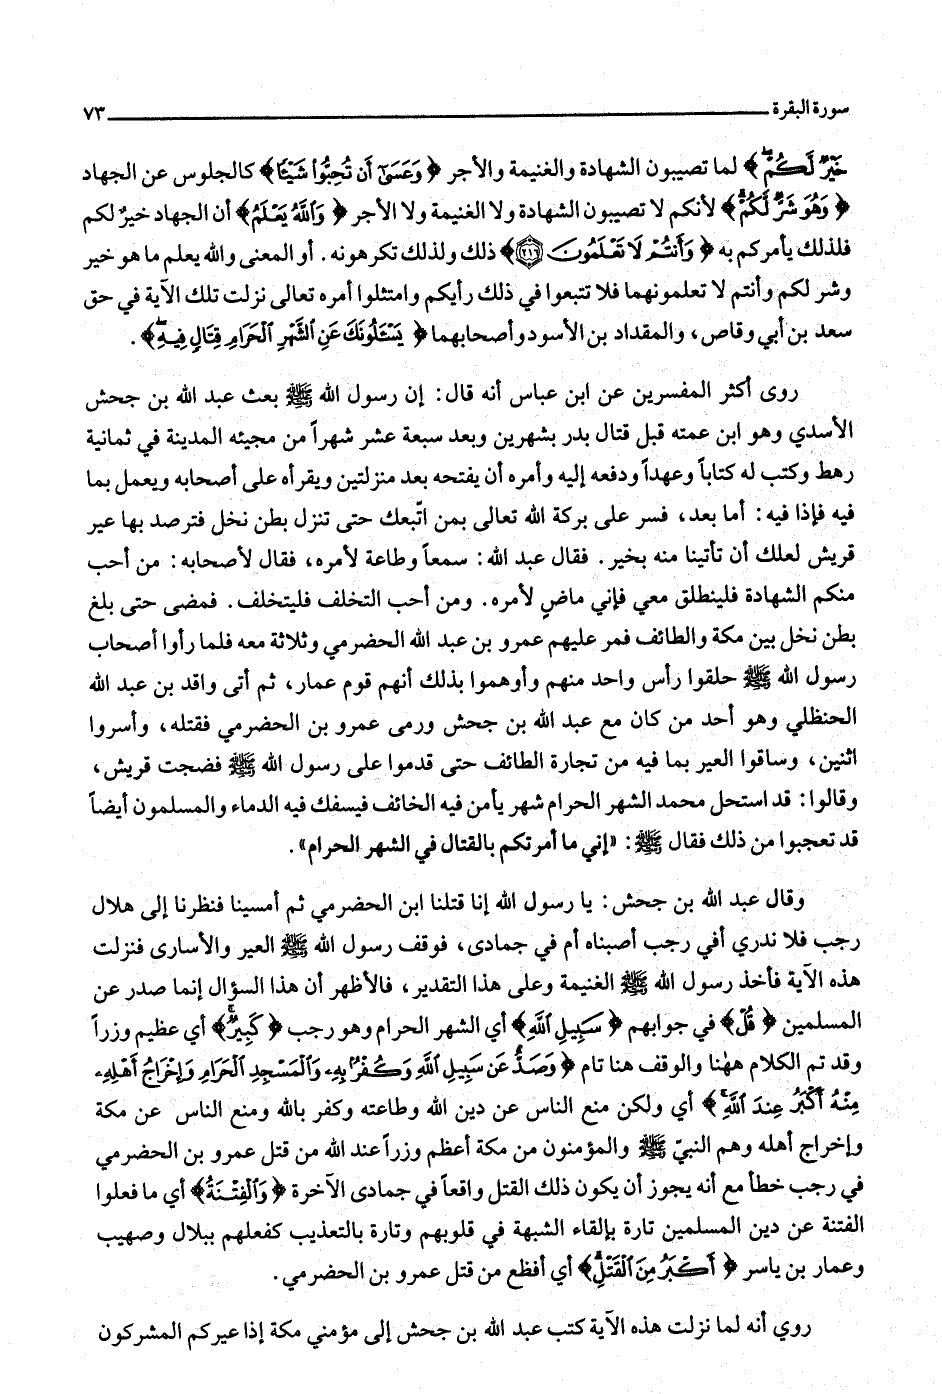 سورة البقرة ٧٣
خَيْرٌ لَّكُمْ ﴾ لما تصيبون الشهادة والغنيمة والأجر ﴿ وَعَسَىٰٓ أَن تُحِبُّوا۟ شَيْـًٔا ﴾ كالجلوس عن الجهاد
﴿ وَهُوَ شَرٌّ لَّكُمْ ﴾ لأنكم لا تصيبون الشهادة ولا الغنيمة ولا الأجر ﴿ وَٱللَّهُ يَعْلَمُ ﴾ أن الجهاد خيرٌ لكم
فلذلك يأمركم به ﴿ وَأَنتُمْ لَا تَعْلَمُونَ ٢١٦ ﴾ ذلك ولذلك تكرهونه. أو المعنى والله يعلم ما هو خير
وشر لكم وأنتم لا تعلمونهما فلا تتبعوا في ذلك رأيكم وامتثلوا أمره تعالى نزلت تلك الآية في حق
سعد بن أبي وقاص، والمقداد بن الأسود وأصحابهما ﴿ يَسْـَٔلُونَكَ عَنِ ٱلشَّهْرِ ٱلْحَرَامِ قِتَالٍ فِيهِ ﴾.
روى أكثر المفسرين عن ابن عباس أنه قال: إن رسول الله ﷺ بعث عبد الله بن جحش
الأسدي وهو ابن عمته قبل قتال بدر بشهرين وبعد سبعة عشر شهراً من مجيئه المدينة في ثمانية
رهط وكتب له كتاباً وعهداً ودفعه إليه وأمره أن يفتحه بعد منزلتين ويقرأه على أصحابه ويعمل بما
فيه فإذا فيه: أما بعد، فسر على بركة الله تعالى بمن اتّبعك حتى تنزل بطن نخل فترصد بها عير
قريش لعلك أن تأتينا منه بخير. فقال عبد الله: سمعاً وطاعة لأمره، فقال لأصحابه: من أحب
منكم الشهادة فلينطلق معي فإني ماضٍ لأمره. ومن أحب التخلف فليتخلف. فمضى حتى بلغ
بطن نخل بين مكة والطائف فمر عليهم عمرو بن عبد الله الحضرمي وثلاثة معه فلما رأوا أصحاب
رسول الله ﷺ حلقوا رأس واحد منهم وأوهموا بذلك أنهم قوم عمار، ثم أتى واقد بن عبد الله
الحنظلي وهو أحد من كان مع عبد الله بن جحش ورمى عمرو بن الحضرمي فقتله، وأسروا
اثنين، وساقوا العير بما فيه من تجارة الطائف حتى قدموا على رسول الله ﷺ فضجت قريش،
وقالوا: قد استحل محمد الشهر الحرام شهر يأمن فيه الخائف فيسفك فيه الدماء والمسلمون أيضاً
قد تعجبوا من ذلك فقال ﷺ: «إني ما أمرتكم بالقتال في الشهر الحرام».
وقال عبد الله بن جحش: يا رسول الله إنا قتلنا ابن الحضرمي ثم أمسينا فنظرنا إلى هلال
رجب فلا ندري أفي رجب أصبناه أم في جمادى، فوقف رسول الله ﷺ العير والأسارى فنزلت
هذه الآية فأخذ رسول الله ﷺ الغنيمة وعلى هذا التقدير، فالأظهر أن هذا السؤال إنما صدر عن
المسلمين ﴿ قُلْ ﴾ في جوابهم ﴿ سَبِيلِ ٱللَّهِ ﴾ أي الشهر الحرام وهو رجب ﴿ كَبِيرٌ ﴾ أي عظيم وزراً
وقد تم الكلام ههنا والوقف هنا تام ﴿ وَصَدٌّ عَن سَبِيلِ ٱللَّهِ وَكُفْرٌۢ بِهِۦ وَٱلْمَسْجِدِ ٱلْحَرَامِ وَإِخْرَاجُ أَهْلِهِۦ
مِنْهُ أَكْبَرُ عِندَ ٱللَّهِ ﴾ أي ولكن منع الناس عن دين الله وطاعته وكفر بالله ومنع الناس عن مكة
وإخراج أهله وهم النبيّ ﷺ والمؤمنون من مكة أعظم وزراً عند الله من قتل عمرو بن الحضرمي
في رجب خطأ مع أنه يجوز أن يكون ذلك القتل واقعاً في جمادى الآخرة ﴿ وَٱلْفِتْنَةُ ﴾ أي ما فعلوا
الفتنة عن دين المسلمين تارة بإلقاء الشبهة في قلوبهم وتارة بالتعذيب كفعلهم ببلال وصهيب
وعمار بن ياسر ﴿ أَكْبَرُ مِنَ ٱلْقَتْلِ ﴾ أي أفظع من قتل عمرو بن الحضرمي.
روي أنه لما نزلت هذه الآية كتب عبد الله بن جحش إلى مؤمني مكة إذا عيركم المشركون